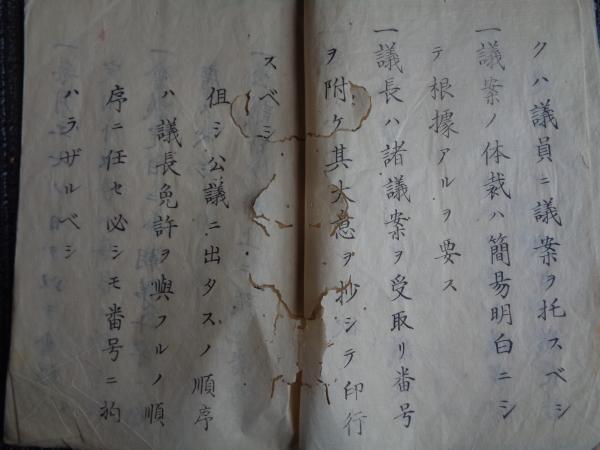 クハ議員ニ議案ヲ托スベシ
一議案ノ体裁ハ簡昜明白ニシ
テ根據アルヲ要ス
一議長ハ諸議案ヲ受取リ番号
ヲ附ケ其大意ヲ抄シテ印行
スベシ
伹シ公議ニ出タスノ順序
ハ議長免許ヲ與フルノ順
序ニ任セ必シモ番号ニ拘
ハラザルベシ